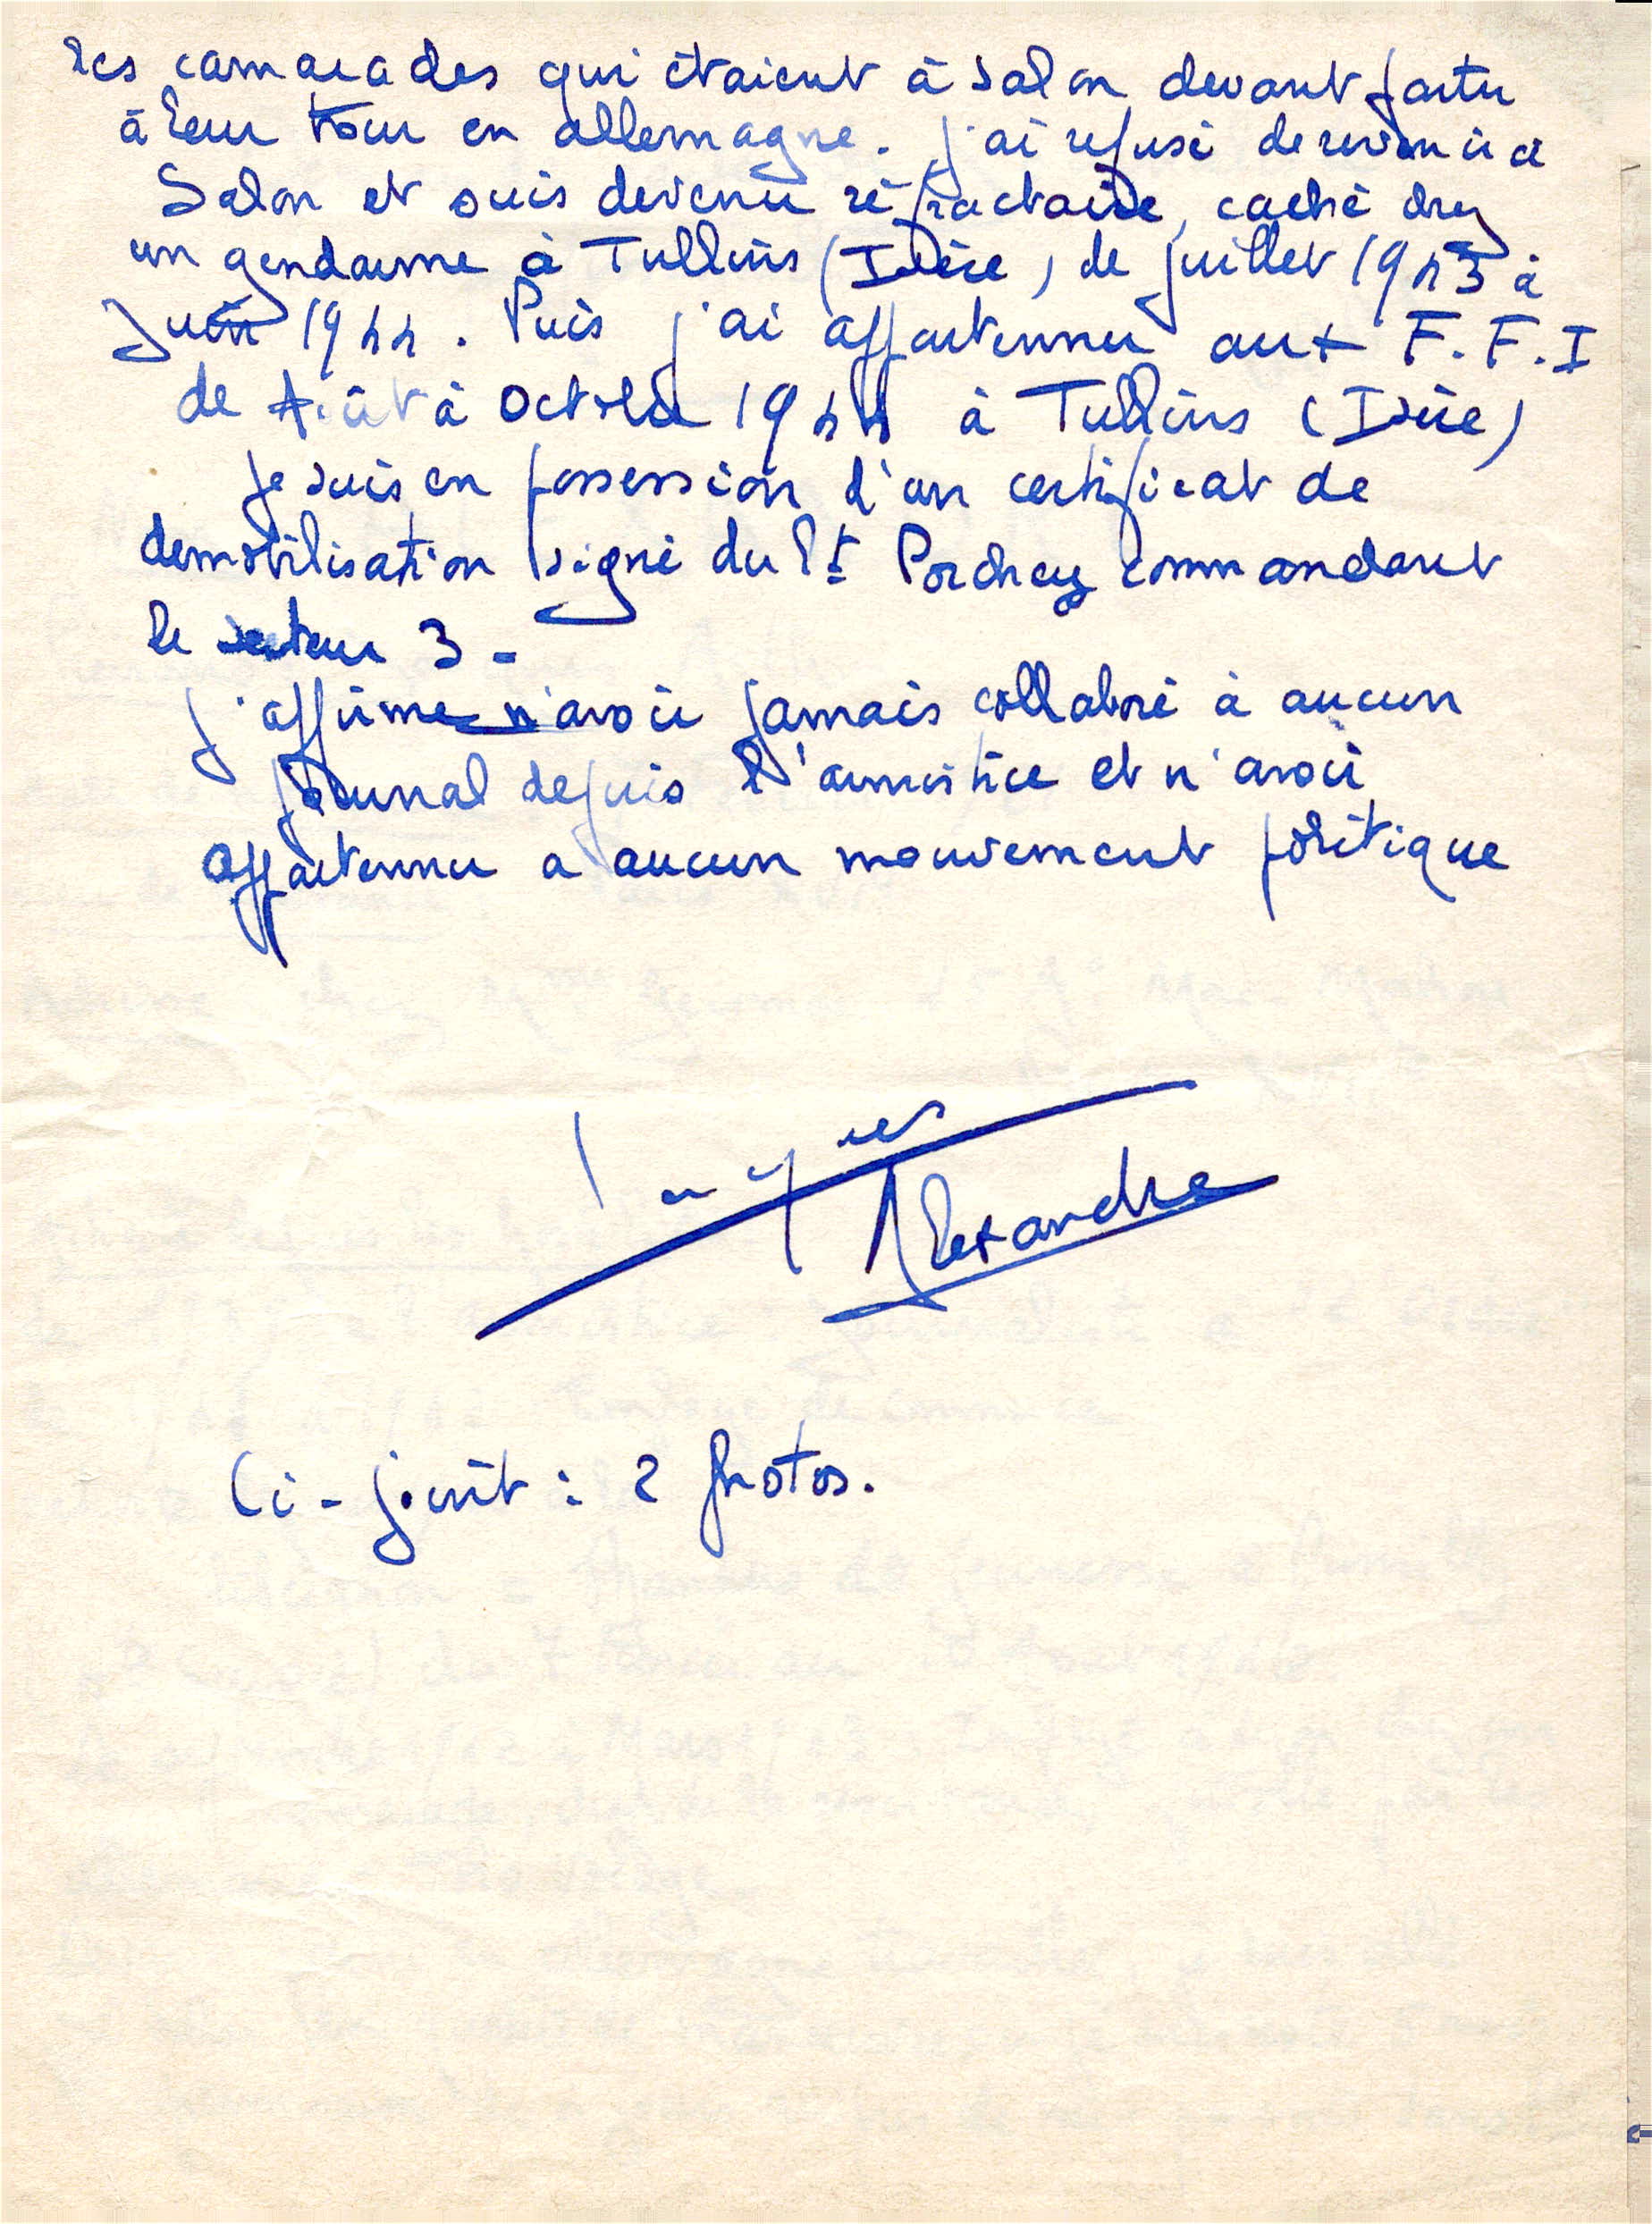 les camarades qui étaient à Salon devant partir
à leur tour en allemagne. j'ai refusé de revenir à
Salon et suis devenu réfractaire, caché chez
un gendarme à Tullins (Isère) de juillet 1943 à
Juin 1944. Puis j'ai appartenu aux F.F.I
de Août à Octobre 1944 à Tullins (Isère)
Je suis en possession d'un certificat de
demobilisation signé du Lt commandant
le secteur 3 -
j'affirme n'avoir jamais collaboré à aucun
journal depuis l'armistice et n'avoir
appartenu a aucun mouvement politique
Alexandre
Ci-joint : 2 photos.